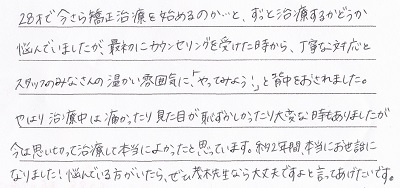 28才で今さら矯正治療を始めるのか…と、ずっと治療するかどうか
悩んでいましたが、最初にカウンセリングを受けた時から、丁寧な対応と
スタッフのみなさんの温かい雰囲気に、「やってみよう!」と背中をおされました。
やはり治療中は痛かったり見た目が恥ずかしかったり大変な時もありましたが
今は思い切って治療して本当によかったと思っています。約2年間、本当にお世話に
なりました!悩んでいる方がいたら、ぜひ茂木先生なら大丈夫ですよと言ってあげたいです。